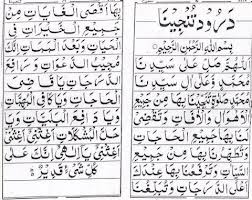 دَرُودِ تُنَجِّينَا
بِسْمِ اللهِ الرَّحْمٰنِ الرَّحِيْمِ
اَللّٰهُمَّ صَلِّ عَلٰى سَيِّدِنَا
مُحَمَّدٍ وَّعَلٰى اٰلِ سَيِّدِنَا
مُحَمَّدٍ صَلٰوةً تُنَجِّيْنَا بِهَا مِنْ جَمِيْعِ
الْاَهْوَالِ وَالْاٰفَاتِ وَتَقْضِيْ
لَنَا بِهَا جَمِيْعَ الْحَاجَاتِ
وَتُطَهِّرُنَا بِهَا مِنْ جَمِيْعِ
السَّيِّاٰتِ وَتَرْفَعُنَا بِهَا
اَعْلَى الدَّرَجَاتِ وَتُبَلِّغُنَا
بِهَا اَقْصَى الْغَايَاتِ مِنْ
جَمِيْعِ الْخَيْرَاتِ فِي
الْحَيَاتِ وَبَعْدَ الْمَمَاتِ اِنَّكَ
مُجِيْبُ الدَّعَوَاتِ وَرَافِعُ
الدَّرَجَاتِ يَا قَاضِيَ
الْحَاجَاتِ وَيَا كَافِيَ الْمُهِمَّاتِ
وَيَا دَافِعَ الْبَلِيَّاتِ وَيَا
حَلَّ الْمُشْكِلَاتِ اَغِثْنِيْ
اَغِثْنِيْ يَا اِلٰهِيْ اِنَّكَ عَلٰى
كُلِّ شَيْءٍ قَدِيْرٌ